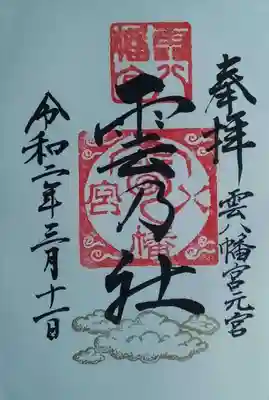 奉拝
雲八幡宮元宮
雲乃社
令和二年三月十一日